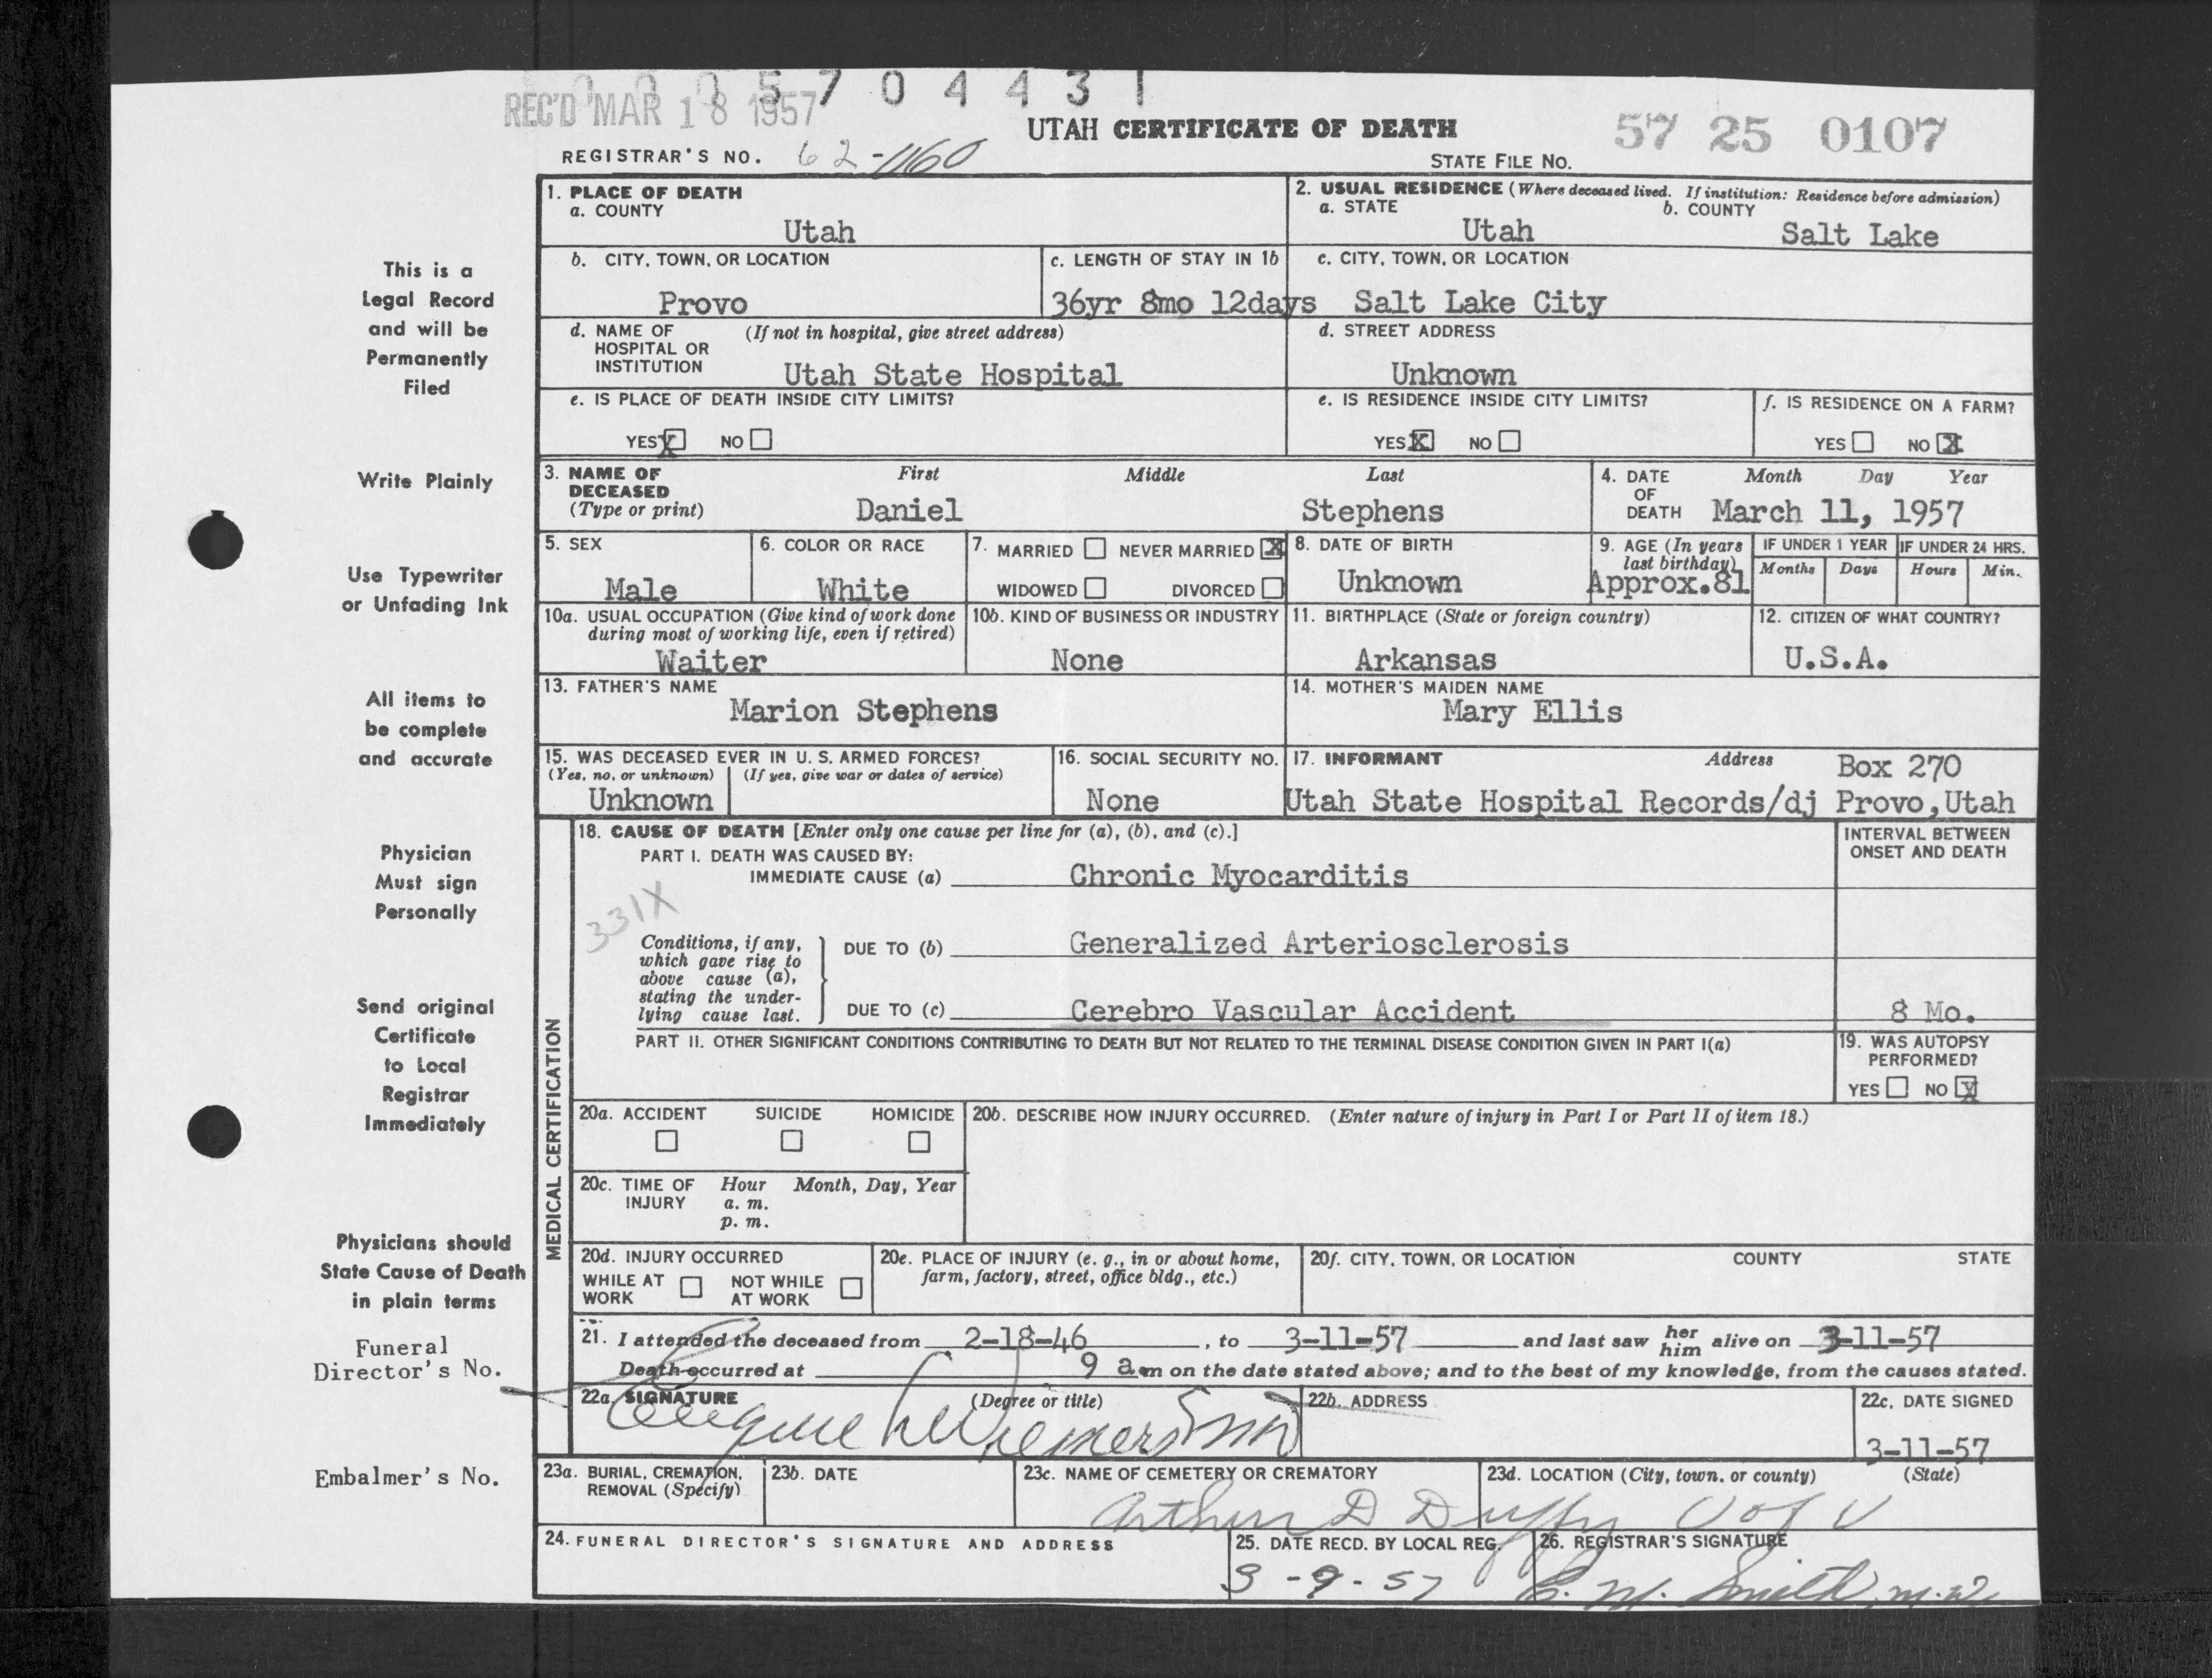 0 0 0 5 7 0 4 4 3 1
REC'D MAR 18 1957
UTAH CERTIFICATE OF DEATH
57 25 0107
REGISTRAR'S NO. 62-1160
STATE FILE NO.
This is a
Legal Record
and will be
Permanently
Filed
Write Plainly
Use Typewriter
or Unfading Ink
All items to
be complete
and accurate
Physician
Must sign
Personally
Send original
Certificate
to Local
Registrar
Immediately
Physicians should
State Cause of Death
in plain terms
Funeral
Director's No.
Embalmer's No.
1. PLACE OF DEATH
a. COUNTY
Utah
2. USUAL RESIDENCE (Where deceased lived. If institution: Residence before admission)
a. STATE b. COUNTY
Utah Salt Lake
b. CITY, TOWN, OR LOCATION
Provo
c. LENGTH OF STAY IN 1b
36yr 8mo 12days
c. CITY, TOWN, OR LOCATION
Salt Lake City
d. NAME OF (If not in hospital, give street address)
HOSPITAL OR
INSTITUTION Utah State Hospital
d. STREET ADDRESS
Unknown
e. IS PLACE OF DEATH INSIDE CITY LIMITS?
YES X NO
e. IS RESIDENCE INSIDE CITY LIMITS?
YES X NO
f. IS RESIDENCE ON A FARM?
YES NO X
3. NAME OF First Middle Last
DECEASED
(Type or print) Daniel Stephens
4. DATE Month Day Year
OF
DEATH March 11, 1957
5. SEX
Male
6. COLOR OR RACE
White
7. MARRIED NEVER MARRIED X
WIDOWED DIVORCED
8. DATE OF BIRTH
Unknown
9. AGE (In years
last birthday)
Approx.81
IF UNDER 1 YEAR IF UNDER 24 HRS.
Months Days Hours Min.
10a. USUAL OCCUPATION (Give kind of work done
during most of working life, even if retired)
Waiter
10b. KIND OF BUSINESS OR INDUSTRY
None
11. BIRTHPLACE (State or foreign country)
Arkansas
12. CITIZEN OF WHAT COUNTRY?
U.S.A.
13. FATHER'S NAME
Marion Stephens
14. MOTHER'S MAIDEN NAME
Mary Ellis
15. WAS DECEASED EVER IN U. S. ARMED FORCES?
(Yes, no, or unknown) (If yes, give war or dates of service)
Unknown
16. SOCIAL SECURITY NO.
None
17. INFORMANT Address Box 270
Utah State Hospital Records/dj Provo,Utah
MEDICAL CERTIFICATION
18. CAUSE OF DEATH [Enter only one cause per line for (a), (b), and (c).]
INTERVAL BETWEEN
ONSET AND DEATH
PART I. DEATH WAS CAUSED BY:
IMMEDIATE CAUSE (a) Chronic Myocarditis
331X
Conditions, if any,
which gave rise to
above cause (a),
stating the under-
lying cause last.
DUE TO (b) Generalized Arteriosclerosis
DUE TO (c) Cerebro Vascular Accident 8 Mo.
PART II. OTHER SIGNIFICANT CONDITIONS CONTRIBUTING TO DEATH BUT NOT RELATED TO THE TERMINAL DISEASE CONDITION GIVEN IN PART I(a)
19. WAS AUTOPSY
PERFORMED?
YES NO X
20a. ACCIDENT SUICIDE HOMICIDE
20b. DESCRIBE HOW INJURY OCCURRED. (Enter nature of injury in Part I or Part II of item 18.)
20c. TIME OF Hour Month, Day, Year
INJURY a. m.
p. m.
20d. INJURY OCCURRED
WHILE AT NOT WHILE
WORK AT WORK
20e. PLACE OF INJURY (e. g., in or about home,
farm, factory, street, office bldg., etc.)
20f. CITY, TOWN, OR LOCATION COUNTY STATE
21. I attended the deceased from 2-18-46, to 3-11-57 and last saw her him alive on 3-11-57
Death occurred at 9 a.m on the date stated above; and to the best of my knowledge, from the causes stated.
22a. SIGNATURE (Degree or title)
22b. ADDRESS
22c. DATE SIGNED
3-11-57
23a. BURIAL, CREMATION,
REMOVAL (Specify)
23b. DATE
23c. NAME OF CEMETERY OR CREMATORY
23d. LOCATION (City, town, or county) (State)
Arthur D Duffy U of U
24. FUNERAL DIRECTOR'S SIGNATURE AND ADDRESS
25. DATE RECD. BY LOCAL REG.
3-9-57
26. REGISTRAR'S SIGNATURE
Smith M.D